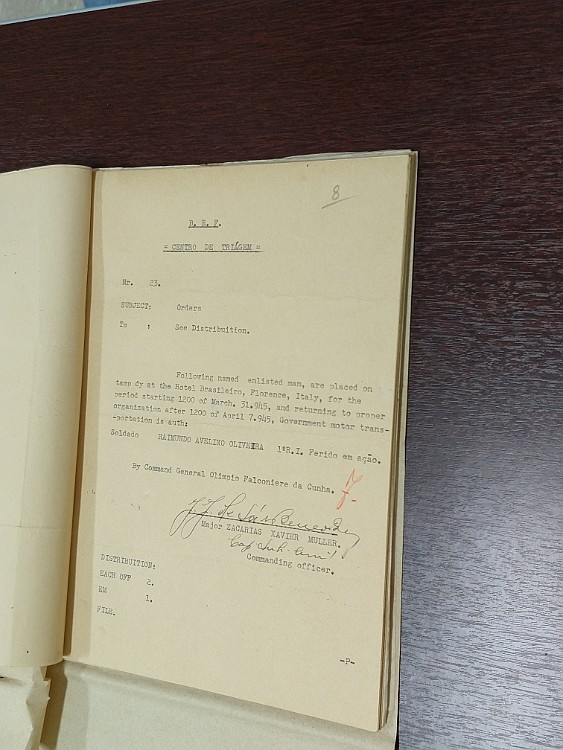 8
B. E. F.
= CENTRO DE TRIÁGEM =
Nr. 23.
SUBJECT: Orders
To : See Distribuition.
Following named enlisted man, are placed on
temp dy at the Hotel Brasileiro, Florence, Italy, for the
period starting 1200 of March. 31.945, and returning to proper
organization after 1200 of April 7.945, Government motor trans-
-portation is auth:
Soldado RAIMUNDO AVELINO OLIVEIRA 1ºR.I. Ferido em ação.
By Command General Olimpio Falconiere da Cunha.
Major ZACARIAS XAVIER MULLER.
Commanding officer.
DISTRIBUITION:
EACH OFF 2.
EM 1.
FILE.
-P-